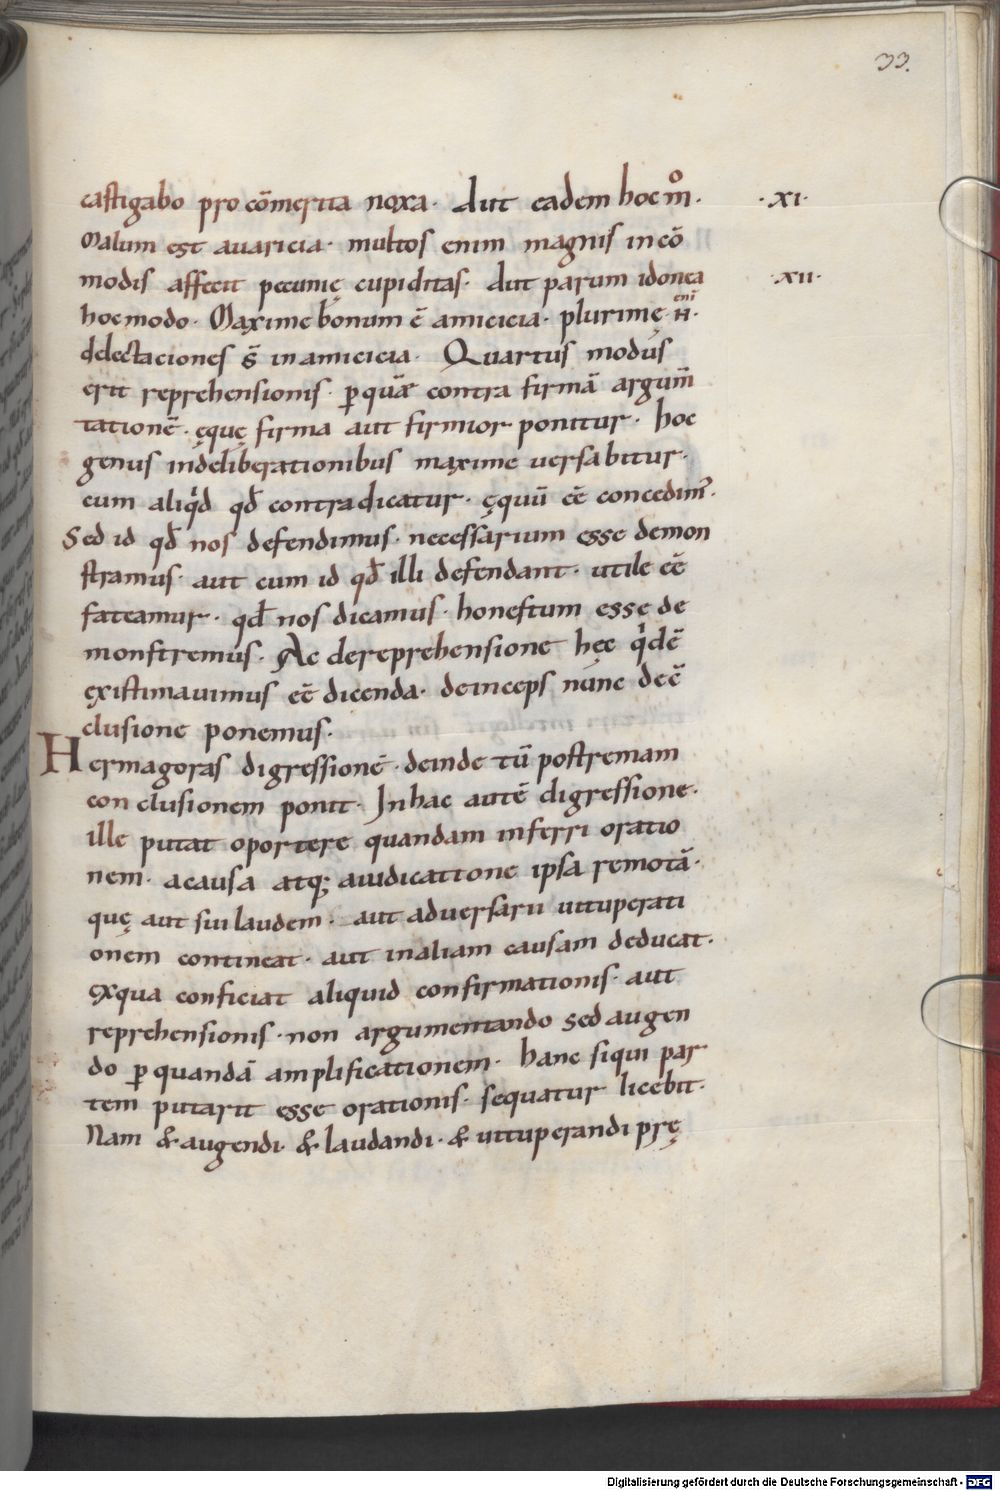 33.
castigabo pro cōmerita noxa· Aut eadem hoc m̊· ·xı·
Malum est auaricia· multos enim magnis incō
modis affecit pecunię cupiditas· Aut parum idonea ·xıı·
hocmodo· Maxime bonum ē amicicia· plurimę n̄·
delectaciones s̄ inamicicia· Quartus modus
erit reprehensionis· ꝑquā contra firmā argum̄
tationē· ęquę firma aut firmior ponitur· hoc
genus indeliberationibus maxime uersabitur·
cum aliqd qd̄ contradicatur· ęquū eē concedim᾽·
Sed id qd̄ nos defendimus· necessarium esse demon
stramus· aut cum id qd̄ illi defendant· utile eē
fateamur· qd̄ nos dicamus· honestum esse de
monstremus· Ac dereprehensione hęc qdē
existimauimus eē dicenda· deinceps nunc decē
clusione ponemus·
Hermagoras digressionē· deinde tū postremam
conclusionem ponit· Inhac autē digressione·
ille putat oportere quandam inferri oratio
nem· acausa atq; aiudicatione ipsa remotā·
quę aut sui laudem· aut aduersarii uituperati
onem contineat· aut inaliam causam deducat·
exqua conficiat aliquid confirmationis· aut
reprehensionis· non argumentando sed augen
do ꝑ quandā amplificationem· hanc siqui par
tem putarit esse orationis· sequatur licebit·
Nam & augendi· & laudandi· & uituperandi prę
Digitalisierung gefördert durch die Deutsche Forschungsgemeinschaft - DFG